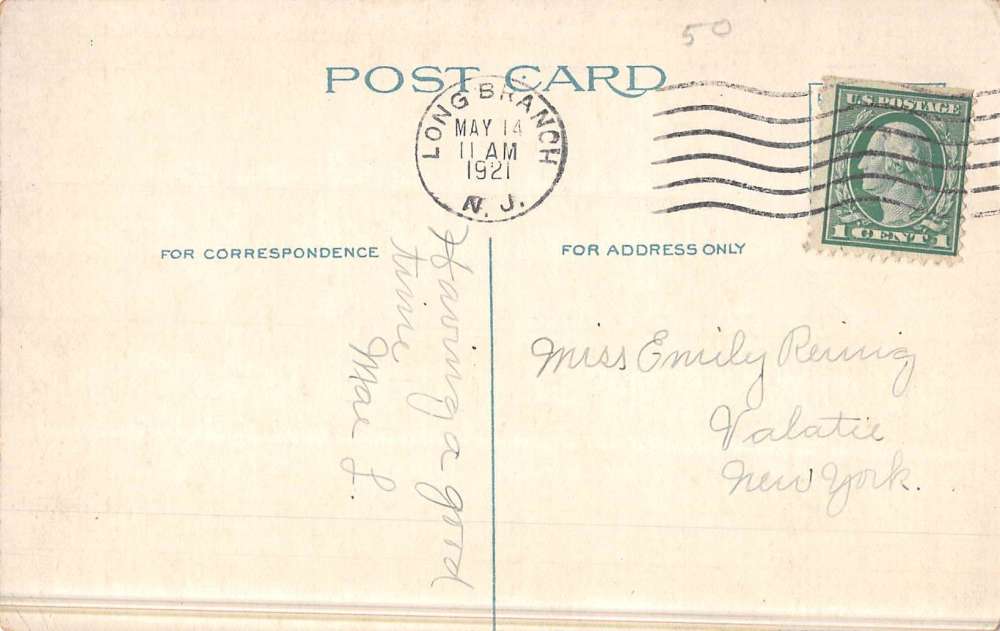 50
POST CARD
LONG BRANCH
MAY 14
11 AM
1921
N. J.
U.S. POSTAGE
1 CENT 1
FOR CORRESPONDENCE
FOR ADDRESS ONLY
Having a good
time
Mae L.
Miss Emily
Valatie
New York.